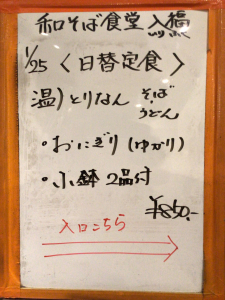 和そば食堂
1/25 〈日替定食〉
温)とりなん そば
うどん
・おにぎり(ゆかり)
・小鉢2品付
¥850.-
入口こちら